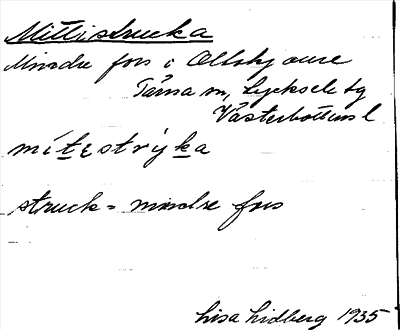 Mittistrucka
Mindre fors i
Tärna sn, Lycksele tg
Västerbottens l
mítestrýka
struck = mindre fors
Lisa Lidberg 1935